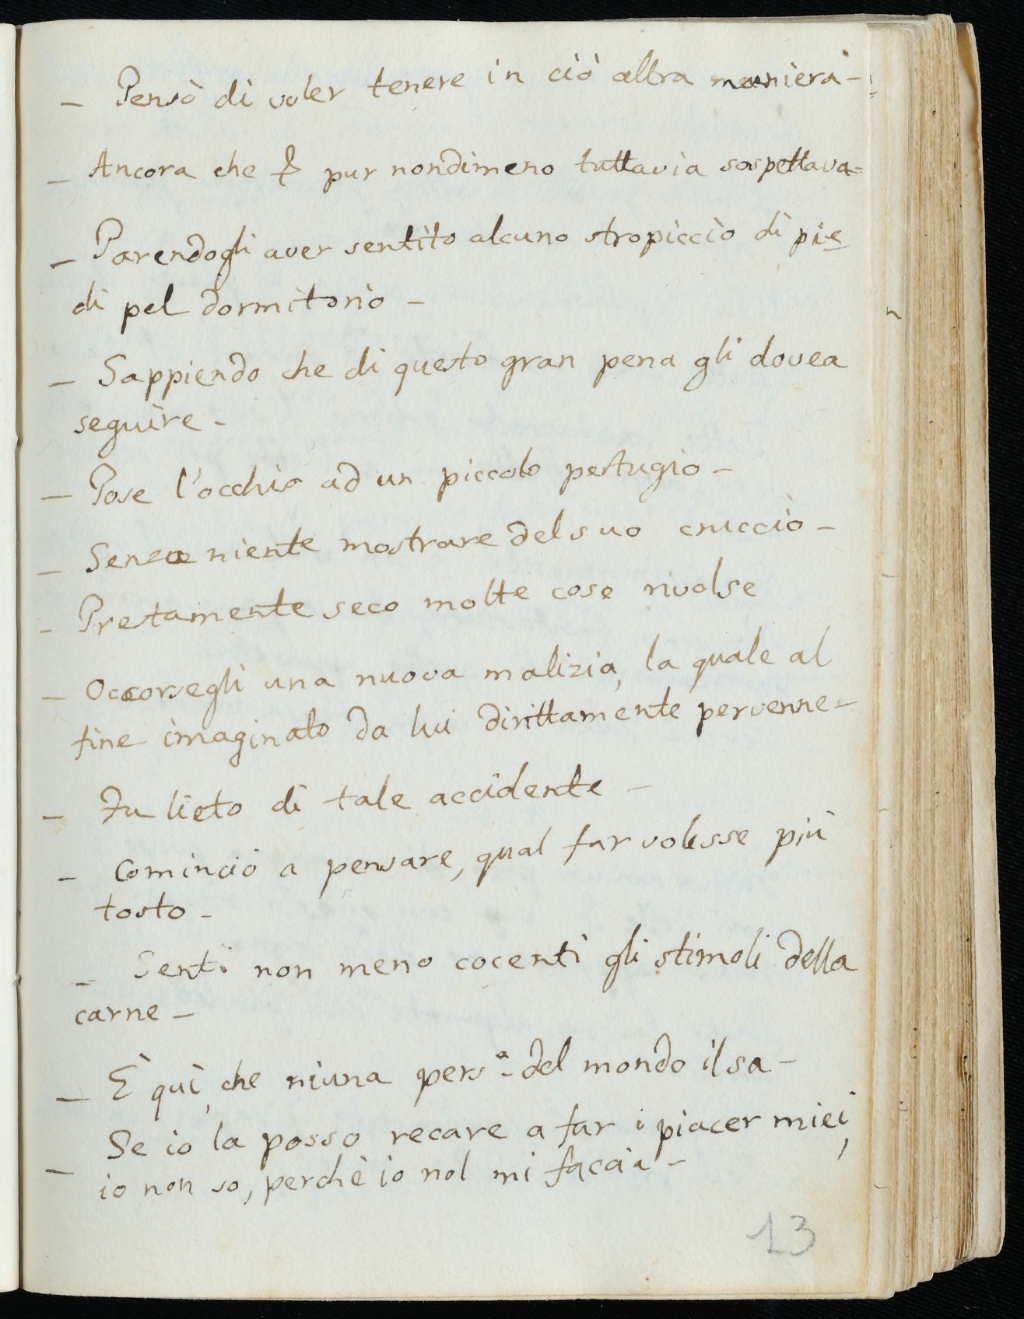 – Pensò di voler tenere in ciò altra maniera –
– Ancora che pur nondimeno tuttavia sospettava=
– Parendogli aver sentito alcuno stropiccio di pie
di pel dormitorio –
– Sappiendo che di questo gran pena gli dovea
seguire –
– Pose l'occhio ad un piccolo pertugio –
– Senza niente mostrare del suo cruccio –
– Prestamente seco molte cose rivolse
– Occorsegli una nuova malizia, la quale al
fine imaginato da lui dirittamente pervenne –
– Fu lieto di tale accidente –
– Cominciò a pensare, qual far volesse più
tosto –
– Sentì non meno cocenti gli stimoli della
carne –
– È quì, che niuna pers.ª del mondo il sa –
– Se io la posso recare a far i piacer miei,
io non so, perchè io nol mi faccia –
13